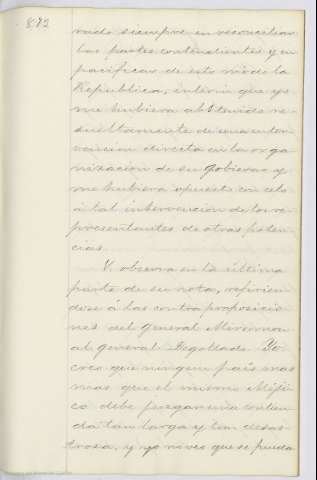 872
nado siempre en reconciliar
las partes contendientes y en
pacificar de este modo la
Republica, interin que yo
me hubiera abstenido re-
sueltamente de una inter-
vencion directa en la orga
nizacion de su gobierno y
me hubiera opuesto con celo
á tal intervencion de los re-
presentantes de otras poten
cias.
V. observa en la última
parte de su nota, refirien
dose á las contra proposicio
nes del General Miramon
al General Degollado. Yo
creo que ningun pais mas
mas que el mismo Méji-
co debe juzgar una contien
da tan larga y tan desas
trosa, y no veo que se pueda